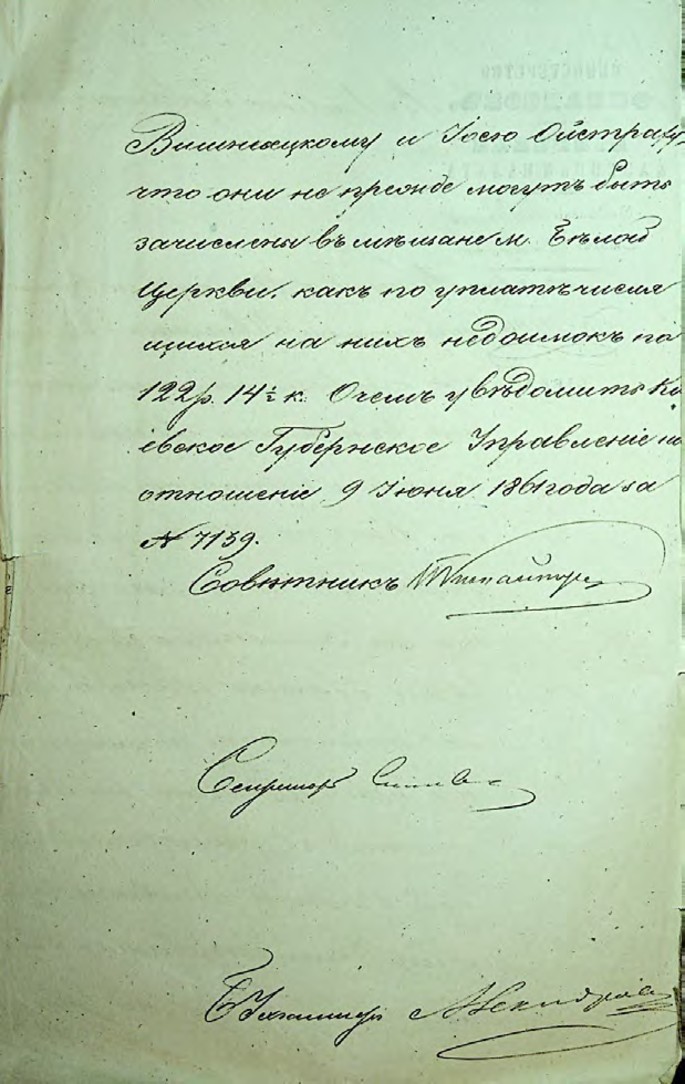 Вишневецкому и Іосю Ойстраху,
что они не прежде могутъ быть
зачислены въ мѣщане м. Бѣлой
Церкви. какъ по уплатѣ числя
щихся на нихъ недоимокъ по
122 р. 14½ к. О чемъ увѣдомить Кі
евское Губернское Управленіе на
отношеніе 9 Іюня 1861 года за
№ 7159.
Совѣтникъ
Секретарь
Бухгалтеръ